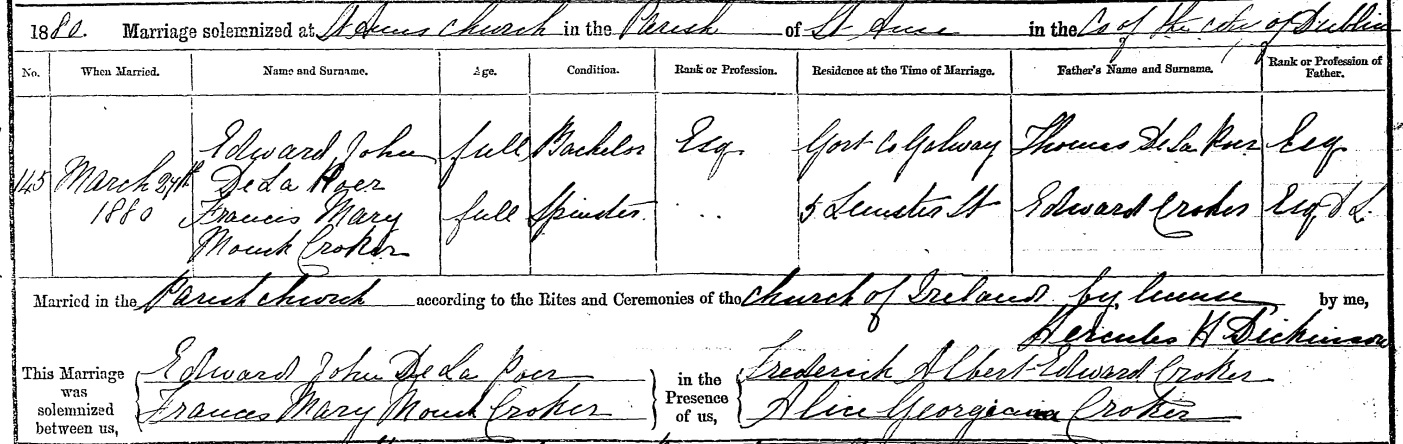 1880. Marriage solemnized at St Anns Church in the Parish of St Anne in the Co of the city of Dublin
No. When Married. Name and Surname. Age. Condition. Rank or Profession. Residence at the Time of Marriage. Father's Name and Surname. Rank or Profession of Father.
145 March 27th 1880 Edward John De La Poer full Bachelor Esq Gort Co Galway Thomas De La Poer Esq
Francis Mary Mount Croker full Spinster .. 5 Leinster St Edward Croker Esq D L.
Married in the Parish church according to the Rites and Ceremonies of the church of Ireland by license by me,
Hercules H Dickinson
This Marriage was solemnized between us, Edward John De La Poer
Frances Mary Mount Croker
in the Presence of us, Frederick Albert Edward Croker
Alice Georgiana Croker